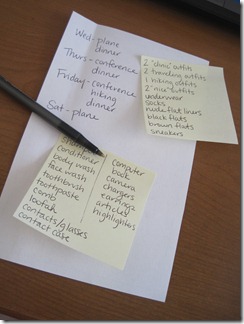 Wed-plane
dinner
Thurs-conference
dinner
Friday-conference
hiking
dinner
Sat-plane
2 outfits
2 traveling outfits
1 hiking outfit
2 "nice" outfits
underwear
socks
nude flat liners
black flats
brown flats
sneakers
conditioner
body wash
face wash
toothbrush
toothpaste
comb
contacts/glasses
contact case
computer
book
camera
chargers
earrings
articles
highlighters